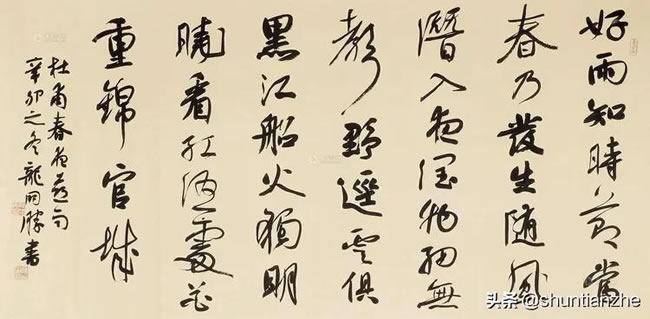 好雨知時節當
春乃發生隨風
潛入夜潤物細無
聲野逕雲俱
黑江船火獨明
曉看紅濕處花
重錦官城
杜甫春夜句
辛卯之冬龍開勝書
头条@shuntianzhe